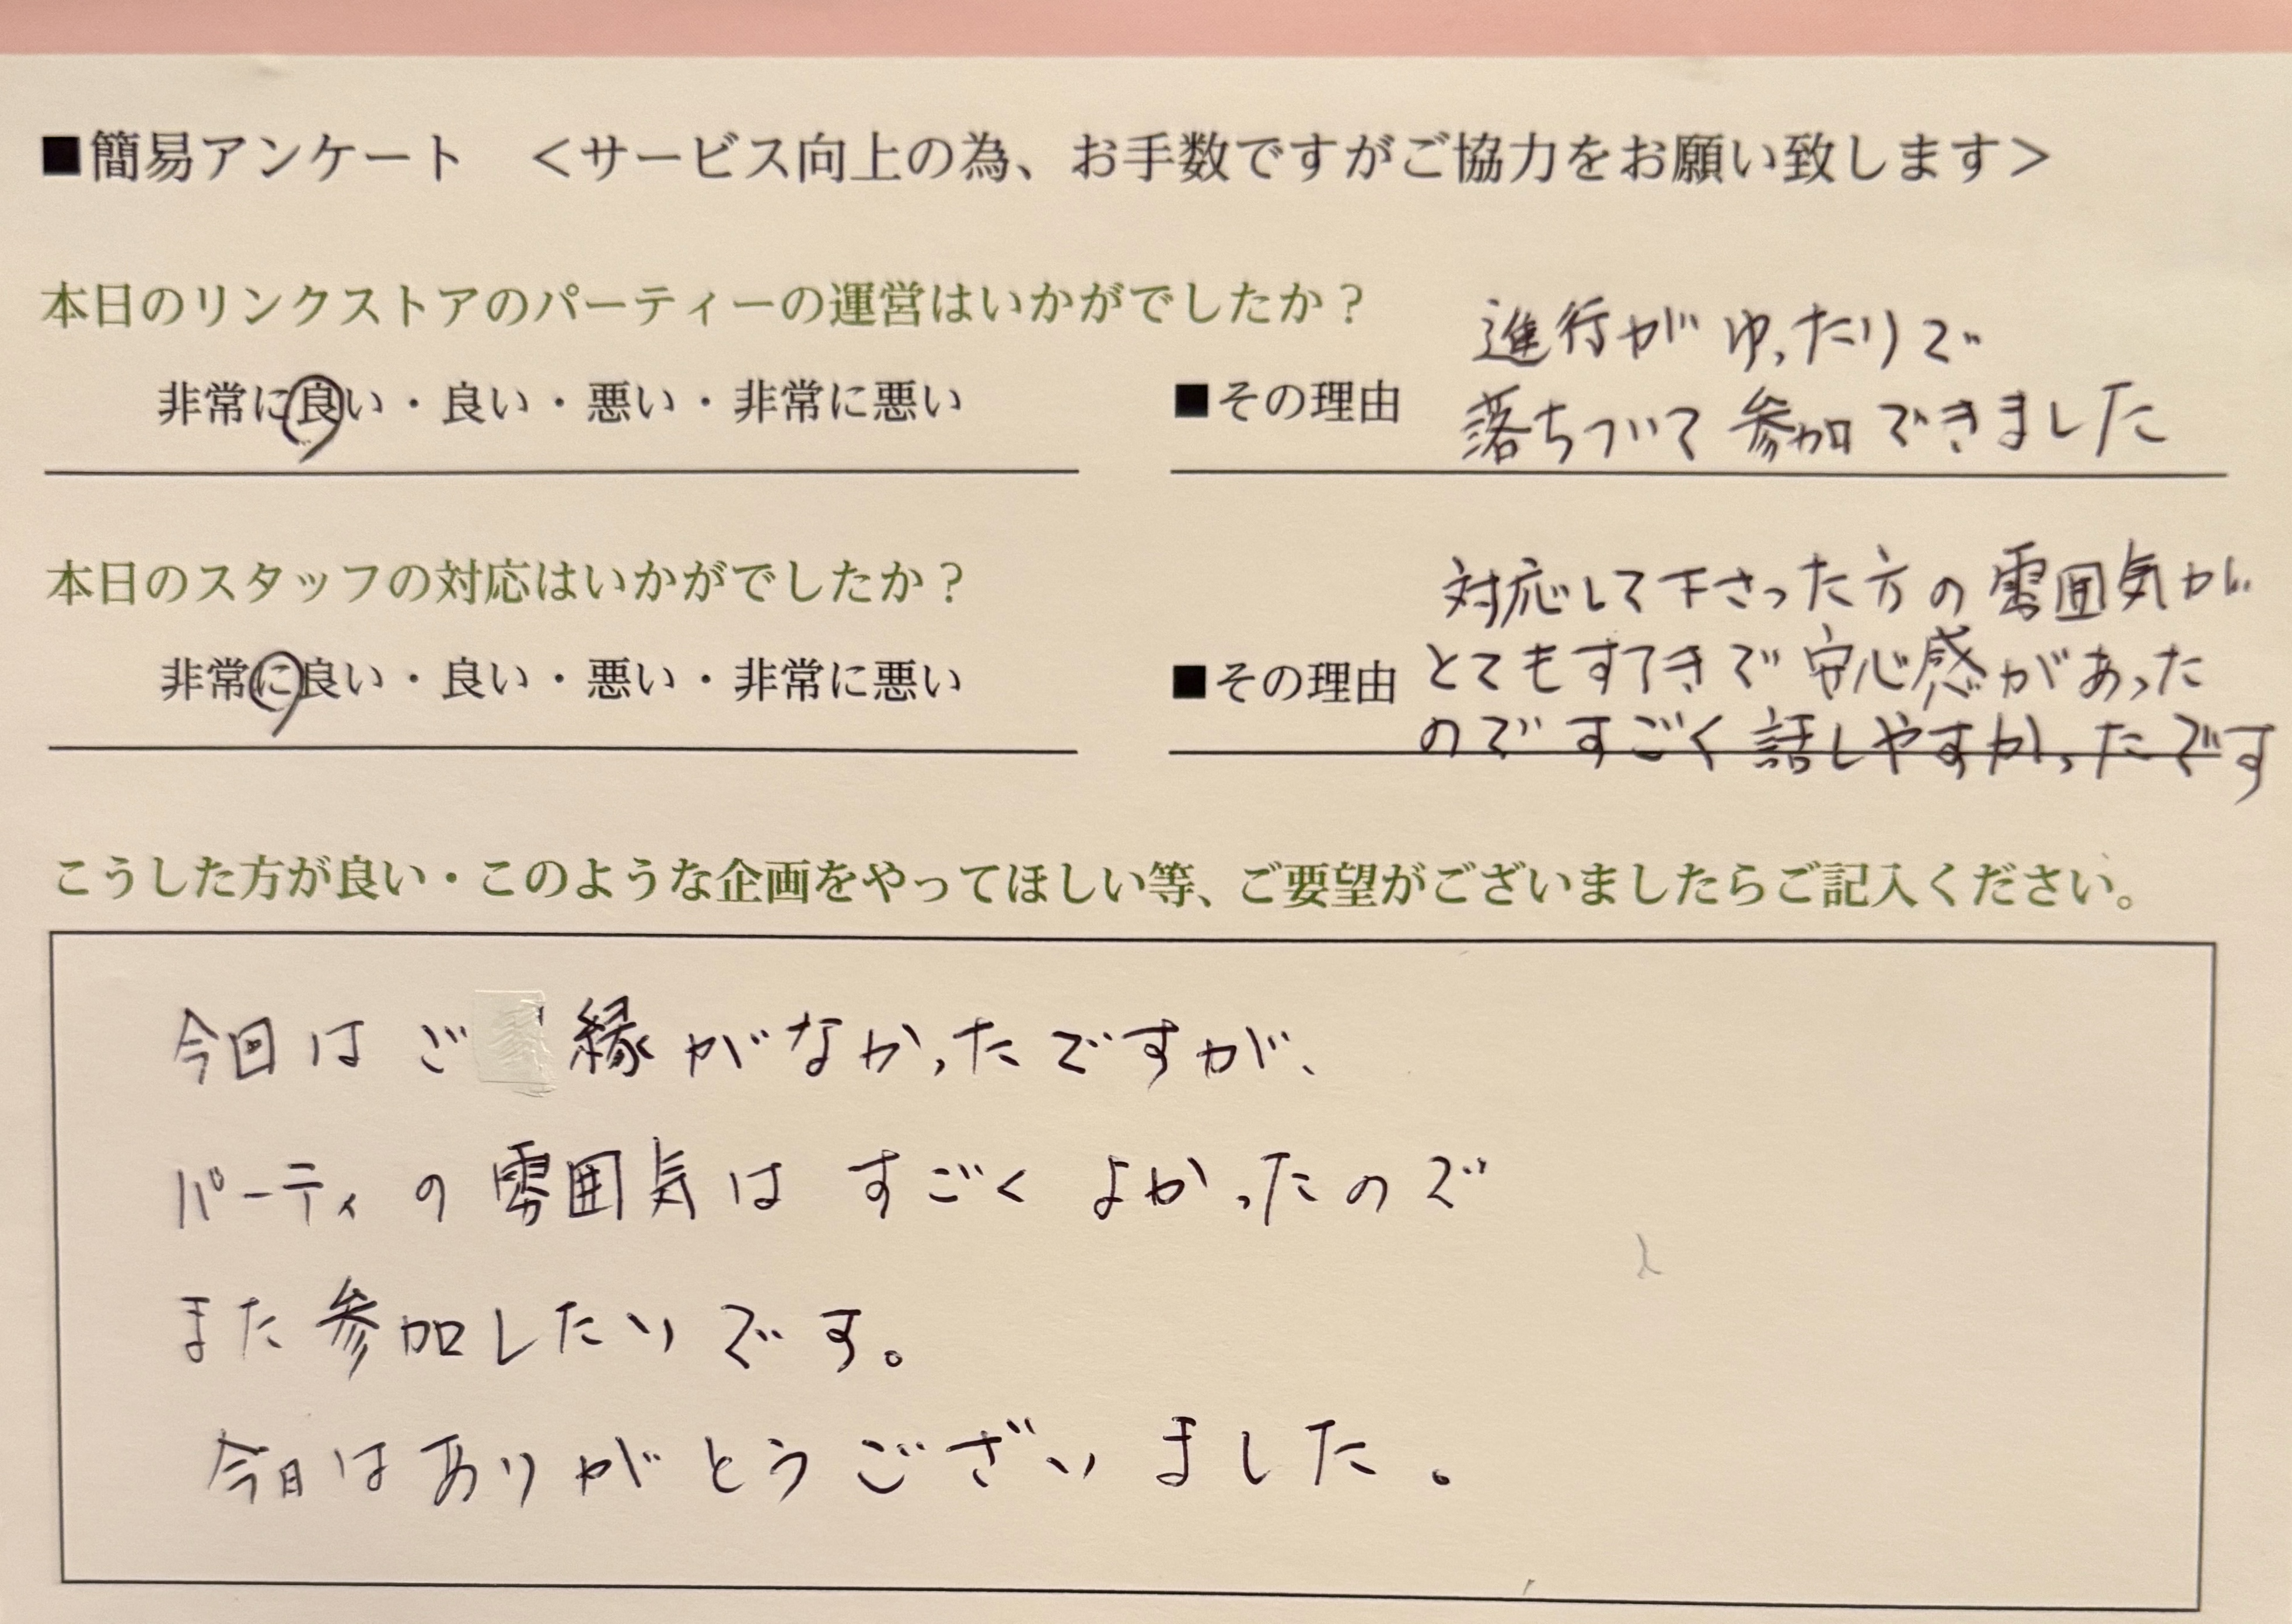 ■簡易アンケート　＜サービス向上の為、お手数ですがご協力をお願い致します＞
本日のリンクストアのパーティーの運営はいかがでしたか？
非常に良い・良い・悪い・非常に悪い
■その理由
進行がゆったりで
落ちついて参加できました
本日のスタッフの対応はいかがでしたか？
非常に良い・良い・悪い・非常に悪い
■その理由
対応して下さった方の雰囲気が
とてもすてきで安心感があった
のですごく話しやすかったです
こうした方が良い・このような企画をやってほしい等、ご要望がございましたらご記入ください。
今回はご縁がなかったですが、
パーティの雰囲気はすごくよかったので
また参加したいです。
今日はありがとうございました。